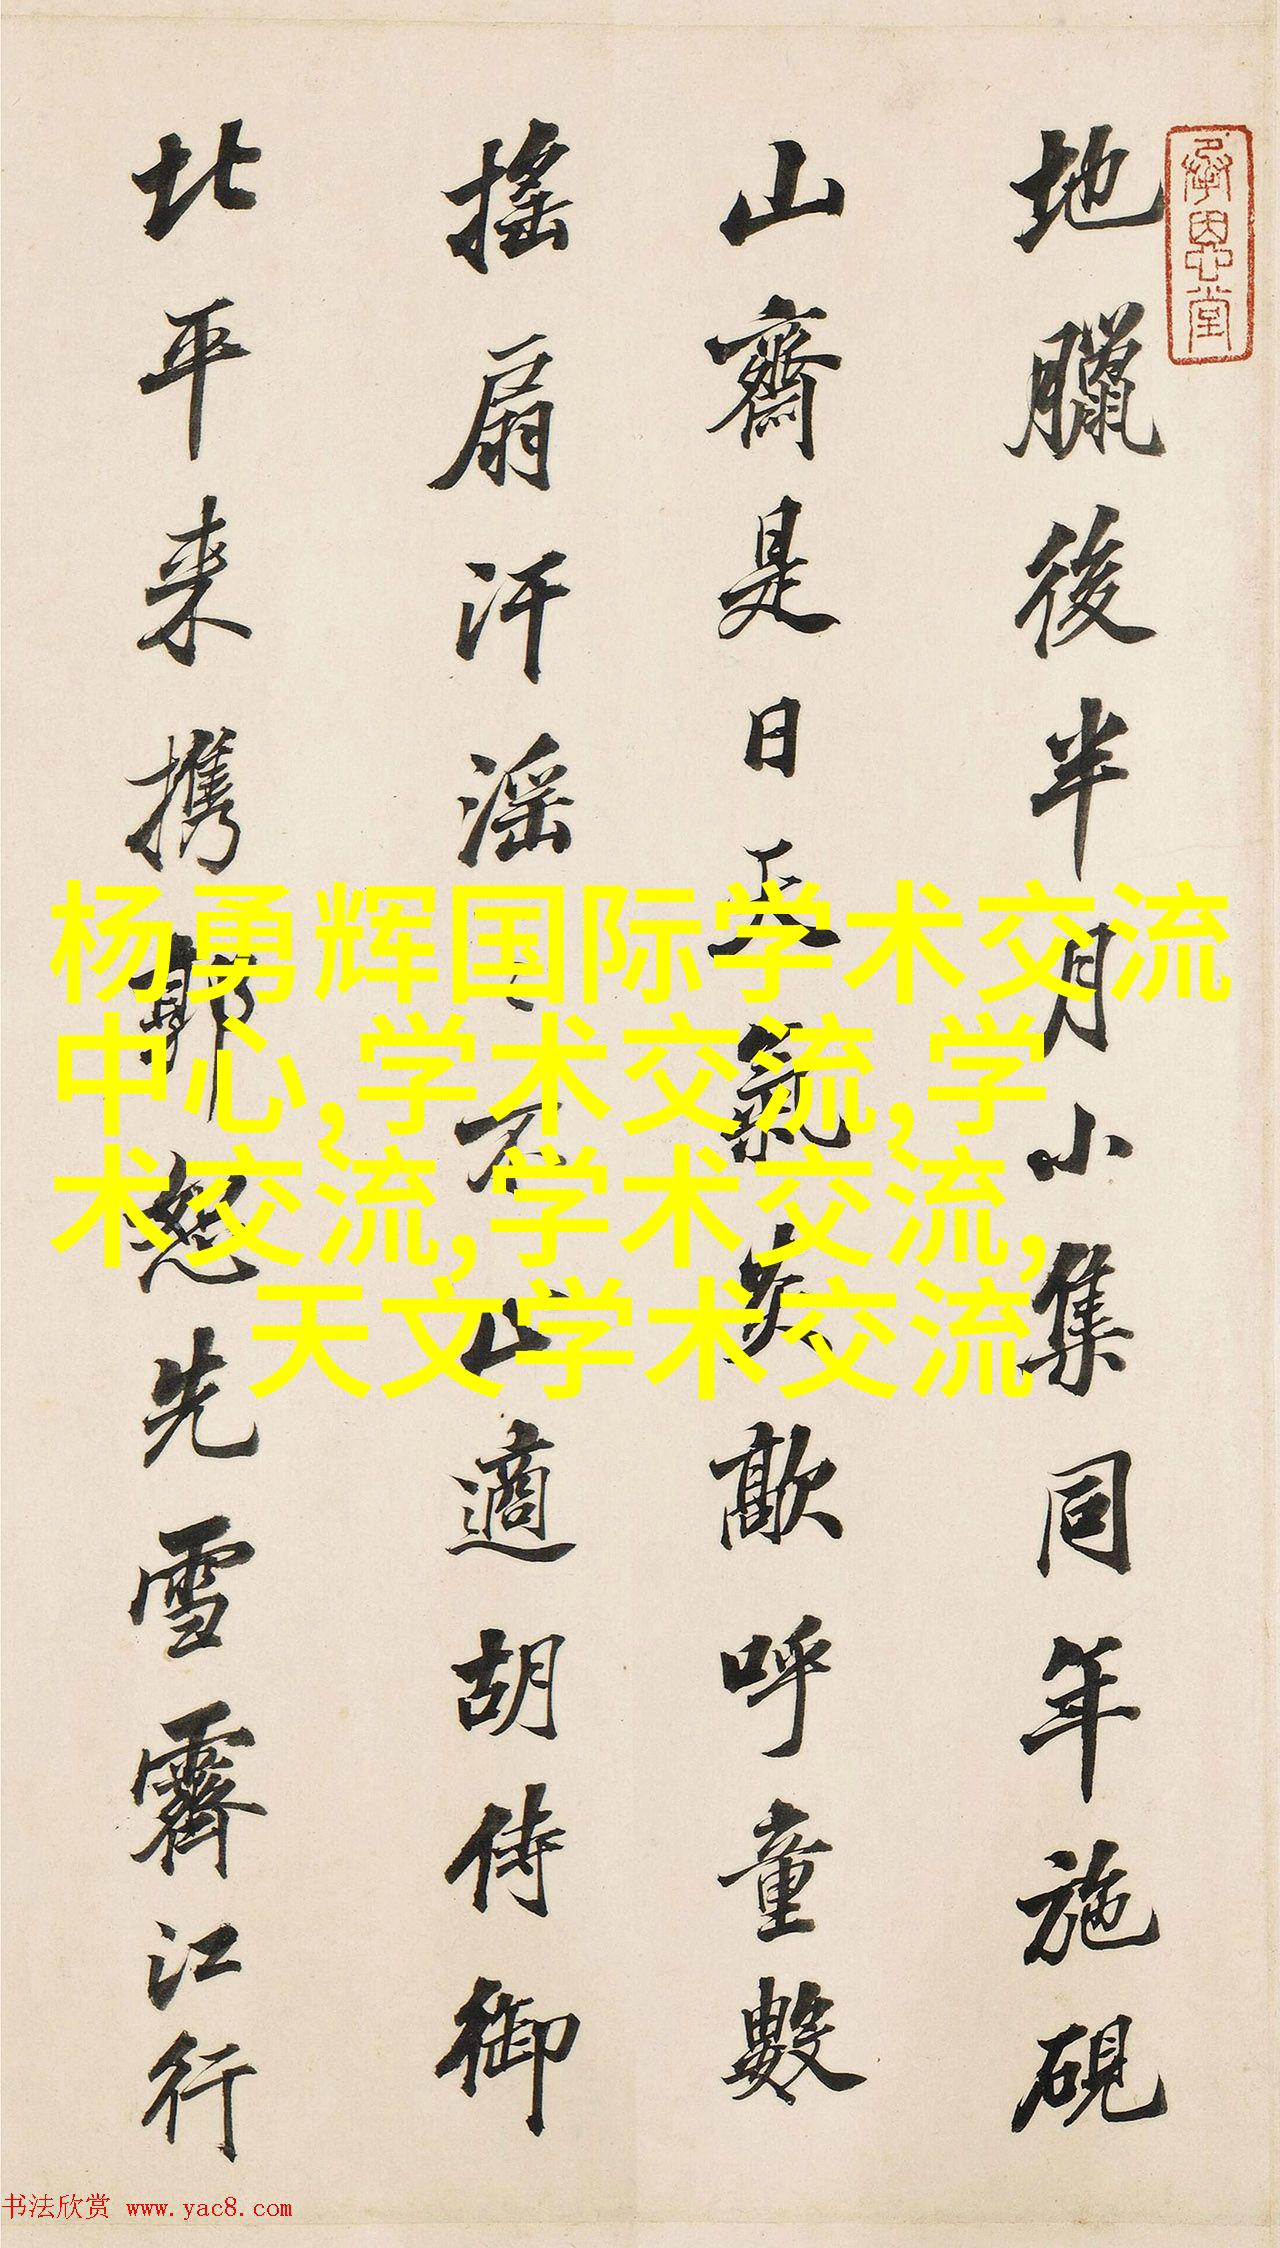 承恩堂
地臘後半月小集同年施硯
山齋是日天氣炎歊呼童數
搖扇汗滛〻不止適胡侍御
北平来携郭恕先雪霽江行
杨勇辉国际学术交流
中心,学术交流,学
术交流,学术交流,
天文学术交流
书法欣赏 www.yac8.com